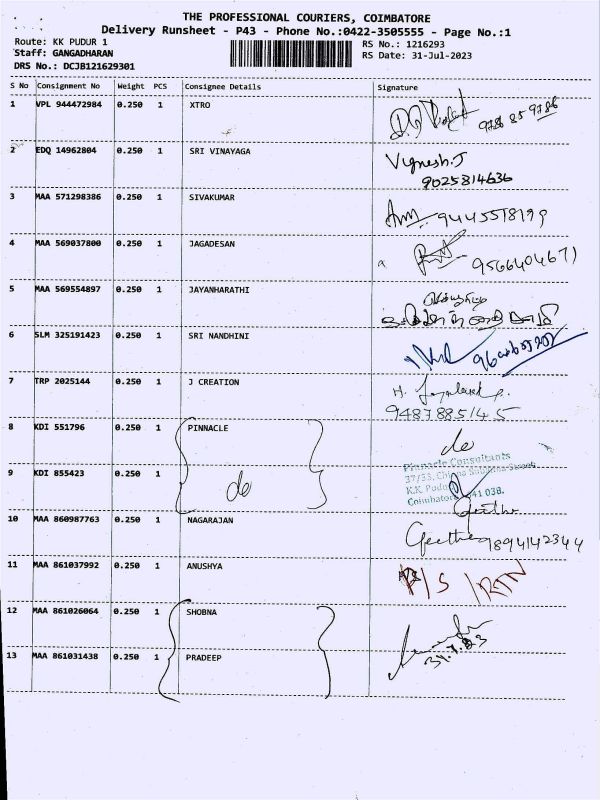 THE PROFESSIONAL COURIERS, COIMBATORE
Delivery Runsheet - P43 - Phone No.:0422-3505555 - Page No.:1
Route: KK PUDUR 1
Staff: GANGADHARAN
DRS No.: DCJB121629301
RS No.: 1216293
RS Date: 31-Jul-2023
S No Consignment No Weight PCS Consignee Details Signature
1 VPL 944472984 0.250 1 XTRO
9786 859786
2 EDQ 14962804 0.250 1 SRI VINAYAGA Vignesh.J
9025814636
3 MAA 571298386 0.250 1 SIVAKUMAR
9445578199
4 MAA 569037800 0.250 1 JAGADESAN
9566404671
5 MAA 569554897 0.250 1 JAYANHARATHI
6 SLM 325191423 0.250 1 SRI NANDHINI
7 TRP 2025144 0.250 1 J CREATION
9487885145
8 KDI 551796 0.250 1 PINNACLE
do
Pinnacle Consultants
37/33, Street
9 KDI 855423 0.250 1
do
K.K. Pudur
Coimbatore 641 038.
Geetha
10 MAA 860987763 0.250 1 NAGARAJAN
Geetha 9894142344
11 MAA 861037992 0.250 1 ANUSHYA
P/S /RTN
12 MAA 861026064 0.250 1 SHOBNA
31.7.23
13 MAA 861031438 0.250 1 PRADEEP